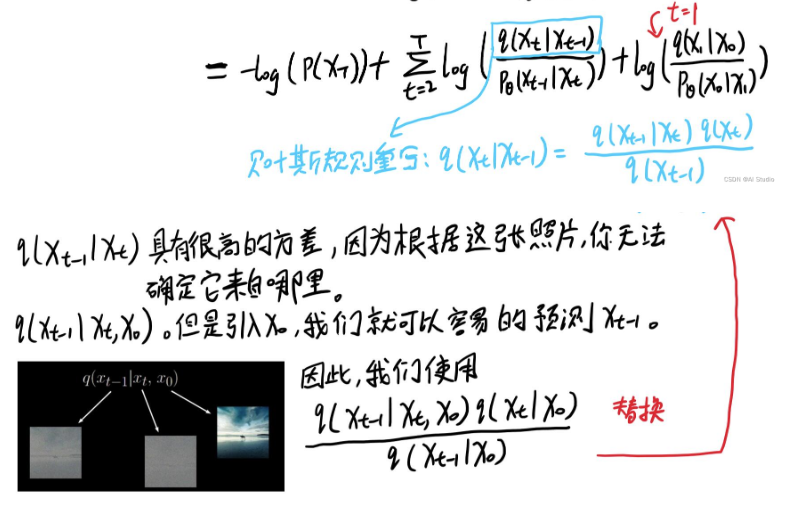 t=1
= -log(P(X_T)) + Σ_{t=2}^{T} log( q(X_t|X_{t-1}) / P_θ(X_{t-1}|X_t) ) + log( q(X_1|X_0) / P_θ(X_0|X_1) )
贝叶斯规则重写: q(X_t|X_{t-1}) = q(X_{t-1}|X_t) q(X_t) / q(X_{t-1})
CSDN @Ai Studio
q(X_{t-1}|X_t) 具有很高的方差,因为根据这张照片,你无法
确定它来自哪里。
q(X_{t-1}|X_t,X_0)。但是引入X_0,我们就可以容易的预测X_{t-1}。
q(x_{t-1}|x_t, x_0)
因此,我们使用
q(X_{t-1}|X_t,X_0) q(X_t|X_0) / q(X_{t-1}|X_0)
替换